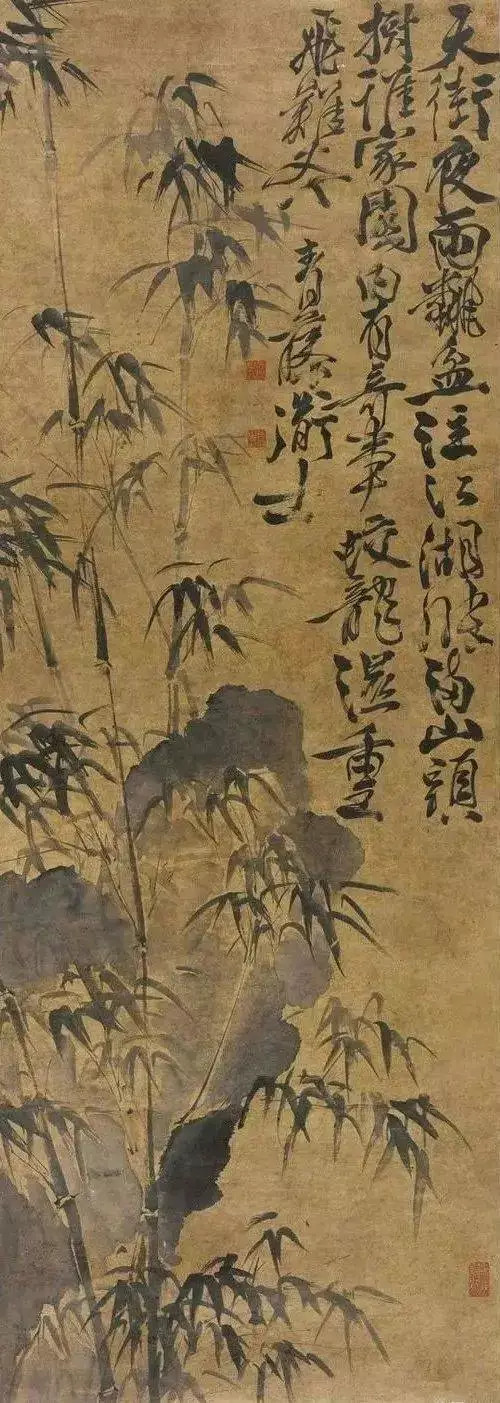 天街夜雨翻盆注江湖漲滿山頭
樹誰家園內有奇事蛟龍濕重
飛難去 青藤 士